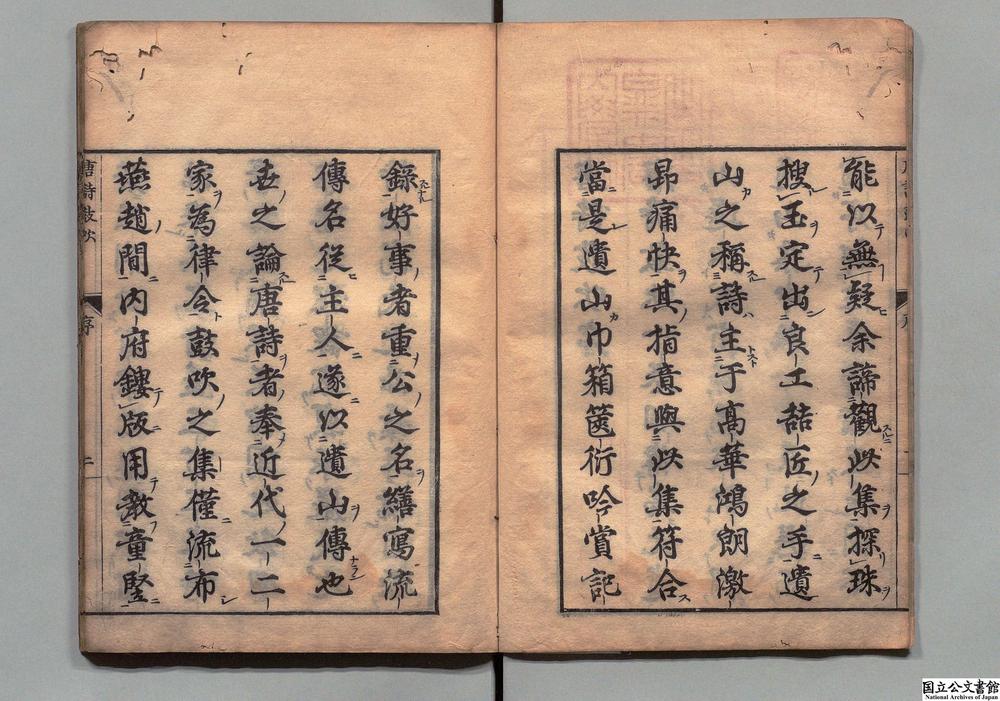 能以無疑余諦觀此集探珠
搜玉定出良工喆匠之手遺
山之稱詩主于高華鴻朗激
昻痛快其指意與此集符合
當是遺山巾箱篋衍吟賞記
錄好事者重公之名繕寫流
傳名從主人遂以遺山傳也
世之論唐詩者奉近代一二
家為律令鼓吹之集僅流布
燕趙間內府鏤版用教童豎
唐詩鼓吹
序
二
国立公文書館
National Archives of Japan